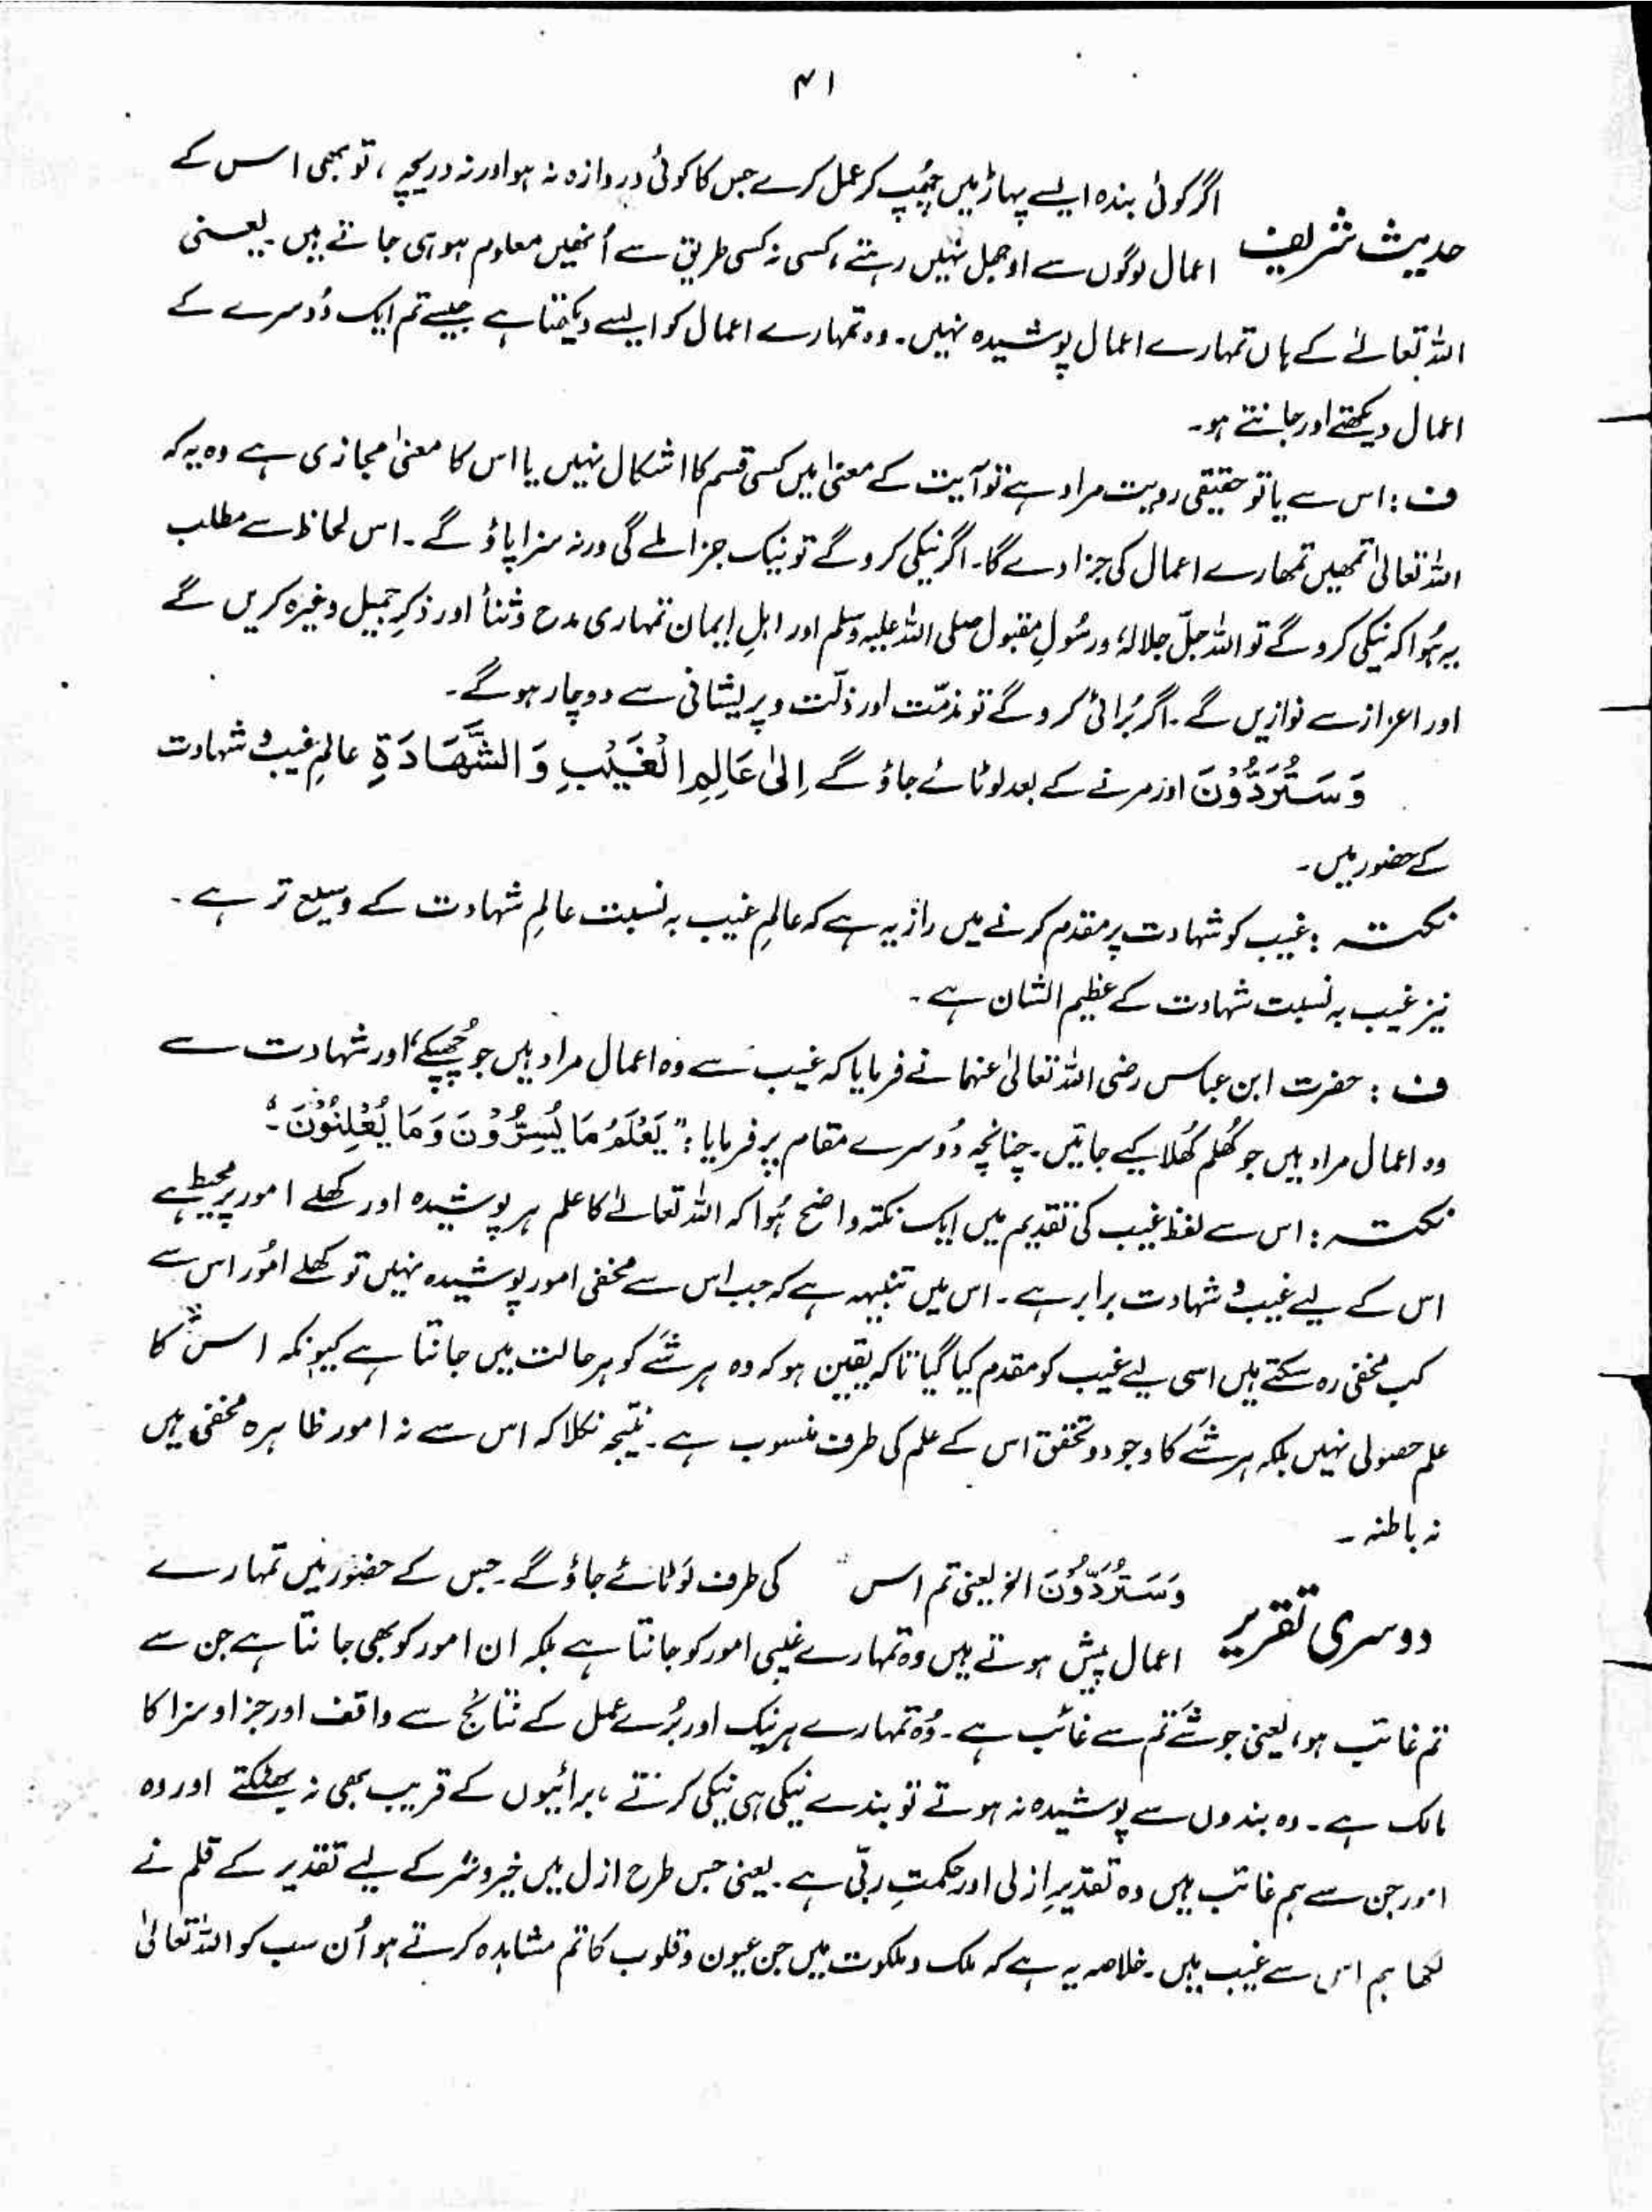 ۴۱
اگر کوئی بندہ ایسے پہاڑ میں چھُپ کر عمل کرے جس کا کوئی دروازہ نہ ہو اور نہ دریچہ ، تو بھی اس کے
حدیث شریف
اعمال لوگوں سے اوجھل نہیں رہتے ، کسی نہ کسی طریق سے اُنھیں معلوم ہو ہی جاتے ہیں ۔ یعنی
اللہ تعالےٰ کے ہاں تمہارے اعمال پوشیدہ نہیں ۔ وہ تمہارے اعمال کو ایسے دیکھتا ہے جیسے تم ایک دُوسرے کے
اعمال دیکھتے اور جانتے ہو۔
ف : اس سے یا تو حقیقی رویت مراد ہے تو آیت کے معنیٰ میں کسی قسم کا اشکال نہیں یا اس کا معنیٰ مجازی ہے وہ یہ کہ
اللہ تعالیٰ تمھیں تمھارے اعمال کی جزا دے گا۔ اگر نیکی کرو گے تو نیک جزا ملے گی ورنہ سزا پاؤ گے ۔ اس لحاظ سے مطلب
یہ ہُوا کہ نیکی کرو گے تو اللہ جلّ جلالہٗ و رسُولِ مقبول صلی اللہ علیہ وسلم اور اہلِ ایمان تمہاری مدح و ثناً اور ذکرِ جمیل وغیرہ کریں گے
اور اعزاز سے نوازیں گے ۔ اگر بُرائی کرو گے تو مذمّت اور ذلّت و پریشانی سے دوچار ہو گے ۔
وَسَتُرَدُّوْنَ اور مرنے کے بعد لوٹائے جاؤ گے اِلیٰ عَالِمِ الْغَیْبِ وَ الشَّھَادَۃِ عالمِ غیب و شہادت
کے حضور میں ۔
نکتہ : غیب کو شہادت پر مقدم کرنے میں راز یہ ہے کہ عالمِ غیب بہ نسبت عالمِ شہادت کے وسیع تر ہے ۔
نیز غیب بہ نسبت شہادت کے عظیم الشان ہے ۔
ف : حضرت ابن عباس رضی اللہ تعالیٰ عنہما نے فرمایا کہ غیب سے وہ اعمال مراد ہیں جو چھُپکے، اور شہادت سے
وہ اعمال مراد ہیں جو کھُلم کھُلا کیے جائیں ۔ چنانچہ دُوسرے مقام پر فرمایا : " یَعْلَمُ مَا یُسِرُّوْنَ وَمَا یُعْلِنُوْنَ ۔"
نکتہ : اس سے لفظ غیب کی تقدیم میں ایک نکتہ واضح ہُوا کہ اللہ تعالےٰ کا علم ہر پوشیدہ اور کھلے امور پر محیط ہے
اس کے لیے غیب و شہادت برابر ہے ۔ اس میں تنبیہہ ہے کہ جب اس سے مخفی امور پوشیدہ نہیں تو کھلے امُور اس سے
کب مخفی رہ سکتے ہیں اسی لیے غیب کو مقدم کیا گیا تاکہ یقین ہو کہ وہ ہر شَے کو ہر حالت میں جانتا ہے کیونکہ اس کا
علم حصولی نہیں بلکہ ہر شَے کا وجود و تحقق اس کے علم کی طرف منسوب ہے ۔ نتیجہ نکلا کہ اس سے نہ امور ظاہرہ مخفی ہیں
نہ باطنہ ۔
وَسَتُرَدُّوْنَ الخ یعنی تم اس کی طرف لَوٹائے جاؤ گے ۔ جس کے حضور میں تمہارے
دوسری تقریر
اعمال پیش ہوتے ہیں وہ تمہارے غیبی امور کو جانتا ہے بلکہ ان امور کو بھی جانتا ہے جن سے
تم غائب ہو، یعنی جو شَے تم سے غائب ہے ۔ وُہ تمہارے ہر نیک اور بُرے عمل کے نتائج سے واقف اور جزا و سزا کا
مالک ہے ۔ وہ بندوں سے پوشیدہ نہ ہوتے تو بندے نیکی ہی نیکی کرتے ، برائیوں کے قریب بھی نہ پھٹکتے اور وہ
امور جن سے ہم غائب ہیں وہ تقدیرِ ازلی اور حکمتِ ربّی ہے ۔ یعنی جس طرح ازل میں خیر و شر کے لیے تقدیر کے قلم نے
لکھا ہم اس سے غیب ہیں ۔ خلاصہ یہ ہے کہ ملک و ملکوت میں جن عیون و قلوب کا تم مشاہدہ کرتے ہو اُن سب کو اللہ تعالیٰ